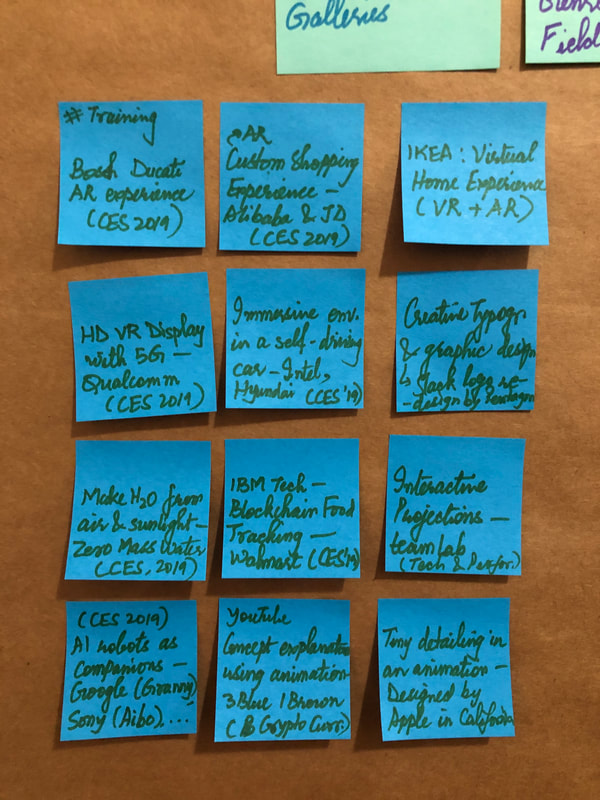 Galleries
Field
# Training
Bosch Ducati
AR experience
(CES 2019)
AR
Custom Shopping
Experience –
Alibaba & JD
(CES 2019)
IKEA : Virtual
Home Experience
(VR + AR)
HD VR Display
with 5G –
Qualcomm
(CES 2019)
Immersive env.
in a self-driving
car – Intel,
Hyundai (CES '19)
Creative Typogr.
& graphic design
↳ Slack logo re-
-design by Pentagon
Make H2O from
air & sunlight –
Zero Mass Water
(CES, 2019)
IBM Tech –
Blockchain Food
Tracking –
Walmart (CES '19)
Interactive
Projections –
teamLab
(Tech & Perfor.)
(CES 2019)
AI robots as
Companions –
Google (Granny)
Sony (Aibo) ....
YouTube
Concept explanation
using animation –
3 Blue 1 Brown
( Crypto Curr.)
Tiny detailing in
an animation –
Designed by
Apple in California